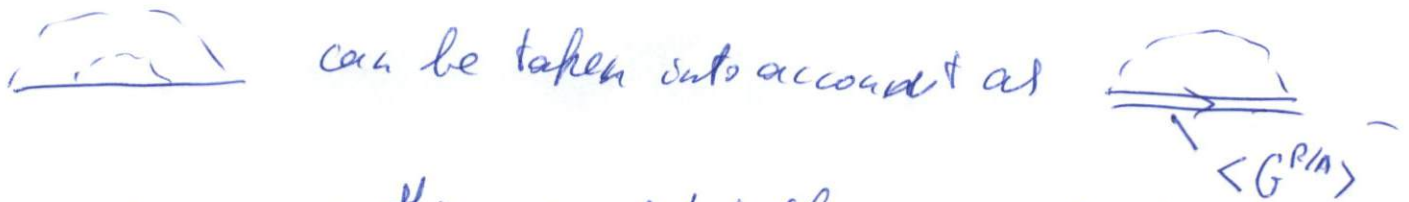 can be taken into account as
<G^{R/A}>